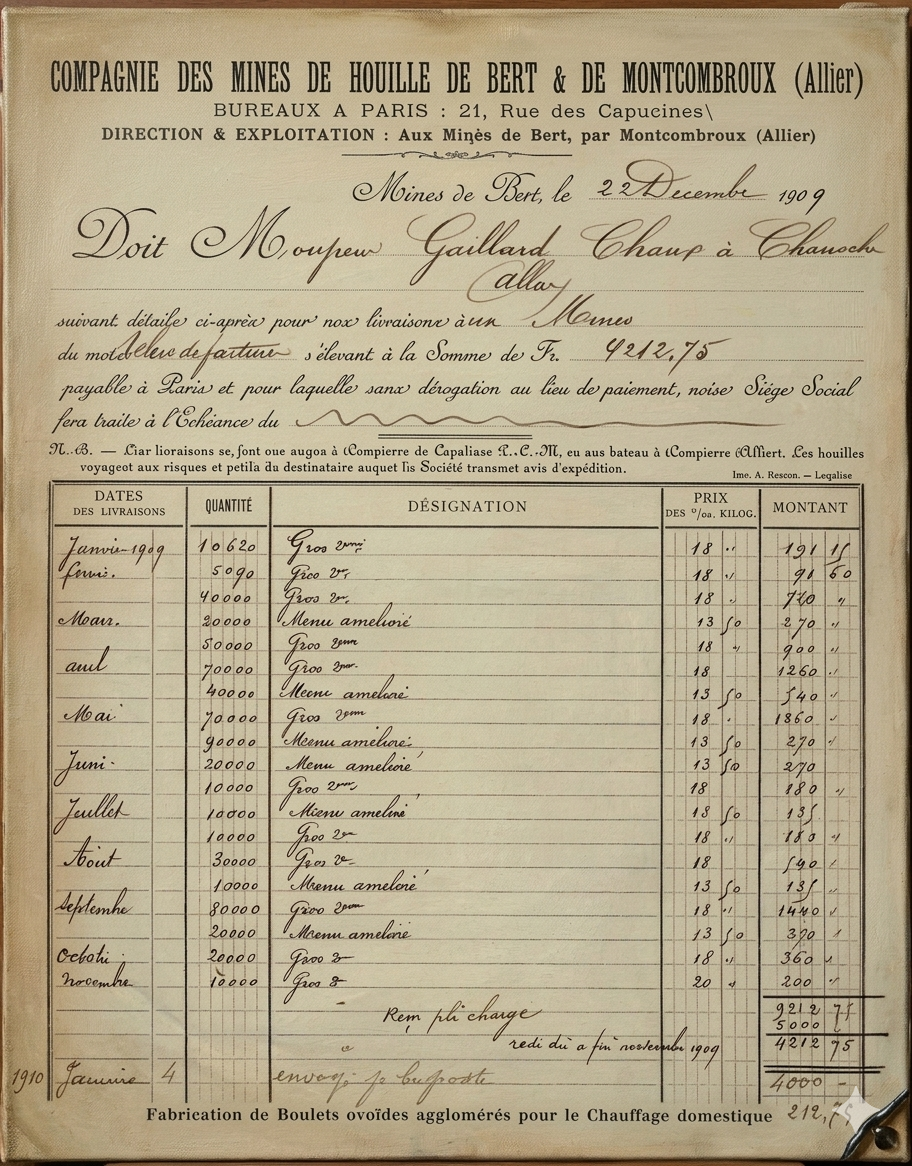 COMPAGNIE DES MINES DE HOUILLE DE BERT & DE MONTCOMBROUX (Allier)
BUREAUX A PARIS : 21, Rue des Capucines\
DIRECTION & EXPLOITATION : Aux Minès de Bert, par Montcombroux (Allier)
Mines de Bert, le 22 Decembre 1909
Doit M Gaillard Chaux à
suivant détaile ci-après pour nox livraisons à Mines
du s'élevant à la Somme de Fr. 4212,75
payable à Paris et pour laquelle sanx dérogation au lieu de paiement, noise Siége Social
fera traite à l'Echéance du
N.B. — Liar lioraisons se, font oue augoa à Compierre de Capaliase P.C.M, eu aus bateau à Compierre (Alliert. Les houilles
voyageot aux risques et petila du destinataire auquet lis Société transmet avis d'expédition.
Ime. A. Rescon. — Leqalise
DATES DES LIVRAISONS QUANTITÉ DÉSIGNATION PRIX DES º/oa. KILOG. MONTANT
Janvier 1909 10620 Gros 18 " 191 15
5090 Gros 18 " 91 60
40000 Gros 18 " 720 "
Mars. 20000 Menu amelioré 13 50 270 "
50000 Gros 18 " 900 "
avril 70000 Gros 18 1260 "
40000 Meenu amelioré 13 50 540 "
Mai 70000 Gros 18 " 1860 "
90000 Meenu amelioré 13 50 270 "
Juni 20000 Menu amelioré 13 50 270
10000 Gros 18 180 "
Jeuillet 10000 18 50 135
10000 Gros 18 " 180 "
Août 30000 Gros 18 540
10000 Meenu amelioré 13 50 135 "
Septembre 80000 Gros 18 " 1440 "
20000 Meenu amelioré 13 50 370 "
20000 Gros 18 " 360 "
Novembre 10000 Gros 20 " 200 "
Rem pli charge 9212 75
5000
redi dû a fin novembre 1909 4212 75
1910 Janvire 4 envoyé p 4000 -
Fabrication de Boulets ovoïdes agglomérés pour le Chauffage domestique 212,75